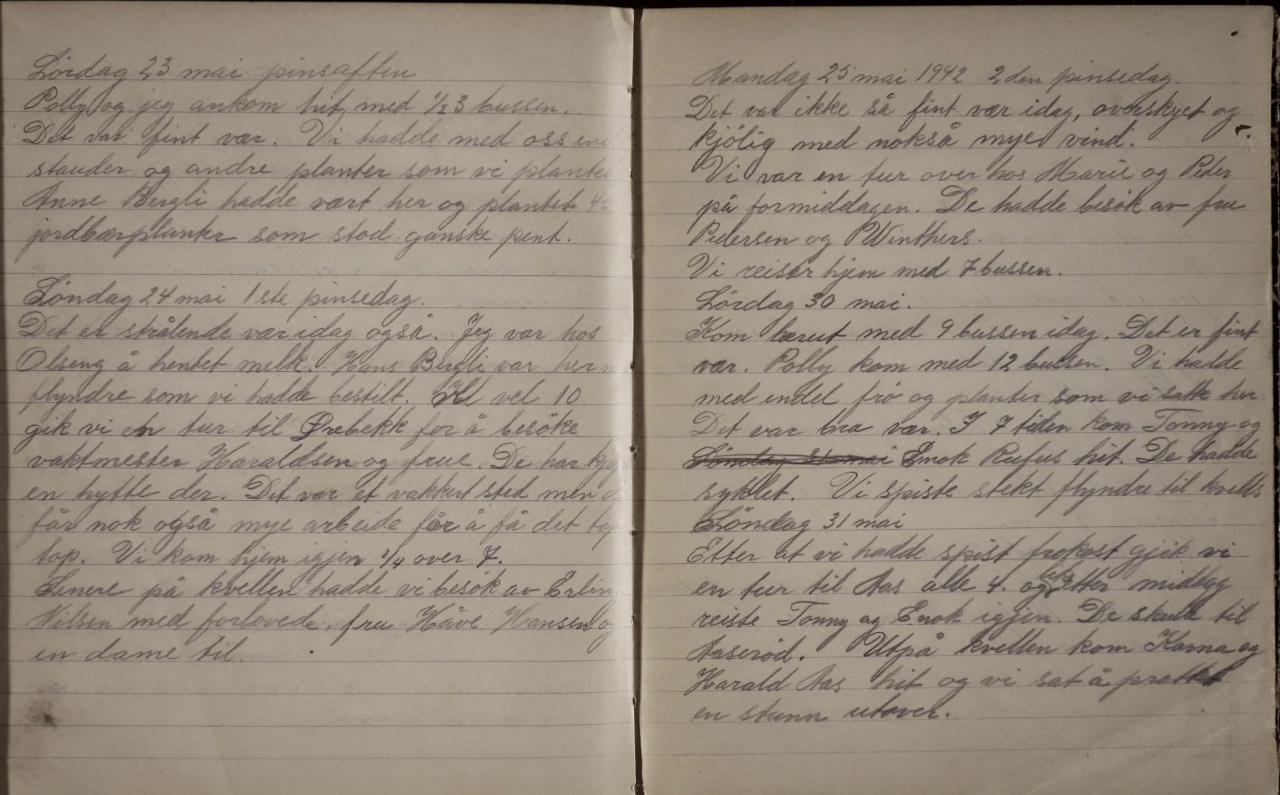 Lördag 23 mai pinsaften
Polly og jeg ankom hit med 1/2 3 bussen.
Det var fint vær. Vi hadde med oss
stauder og andre planter som vi plantet
Anne Bergli hadde vært her og plantet
jordbærplanter som stod ganske pent.
Söndag 24 mai 1ste pinsedag.
Det er strålende vær idag også. Jeg var hos
Olseng å hentet melk. Hans Bergli var her
flyndre som vi hadde bestilt. Kl vel 10
gik vi en tur til Ørebekk for å besöke
vaktmester Haraldsen og frue. De har
en hytte der. Det var et vakkert sted men
får nok også mye arbeide får å få det
top. Vi kom hjem igjen 1/4 over 7.
Senere på kvellen hadde vi besök av Erling
Nilsen med forlovede, fru Håve Hansen og
en dame til.
Mandag 25 mai 1942 2den pinsedag.
Det var ikke så fint vær idag, overskyet og
kjölig med nokså mye vind.
Vi var en tur over hos Marie og Peder
på formiddagen. De hadde besök av frue
Pedersen og Winthers.
Vi reiser hjem med 7 bussen.
Lördag 30 mai.
Kom herut med 9 bussen idag. Det er fint
vær. Polly kom med 12 bussen. Vi hadde
med endel frö og planter som vi satte her
Det var bra vær. I 7 tiden kom Tonny og
Söndag 31 mai Enok Rufus hit. De hadde
syklet. Vi spiste stekt flyndre til kvells
Söndag 31 mai
Etter at vi hadde spist frokost gjik vi
en tur til Aas alle 4. og etter middag
reiste Tonny og Enok igjen. De skule til
Aaseröd. Utpå kvellen kom Karna og
Harald Aas hit og vi sat å prattet
en stunn utover.